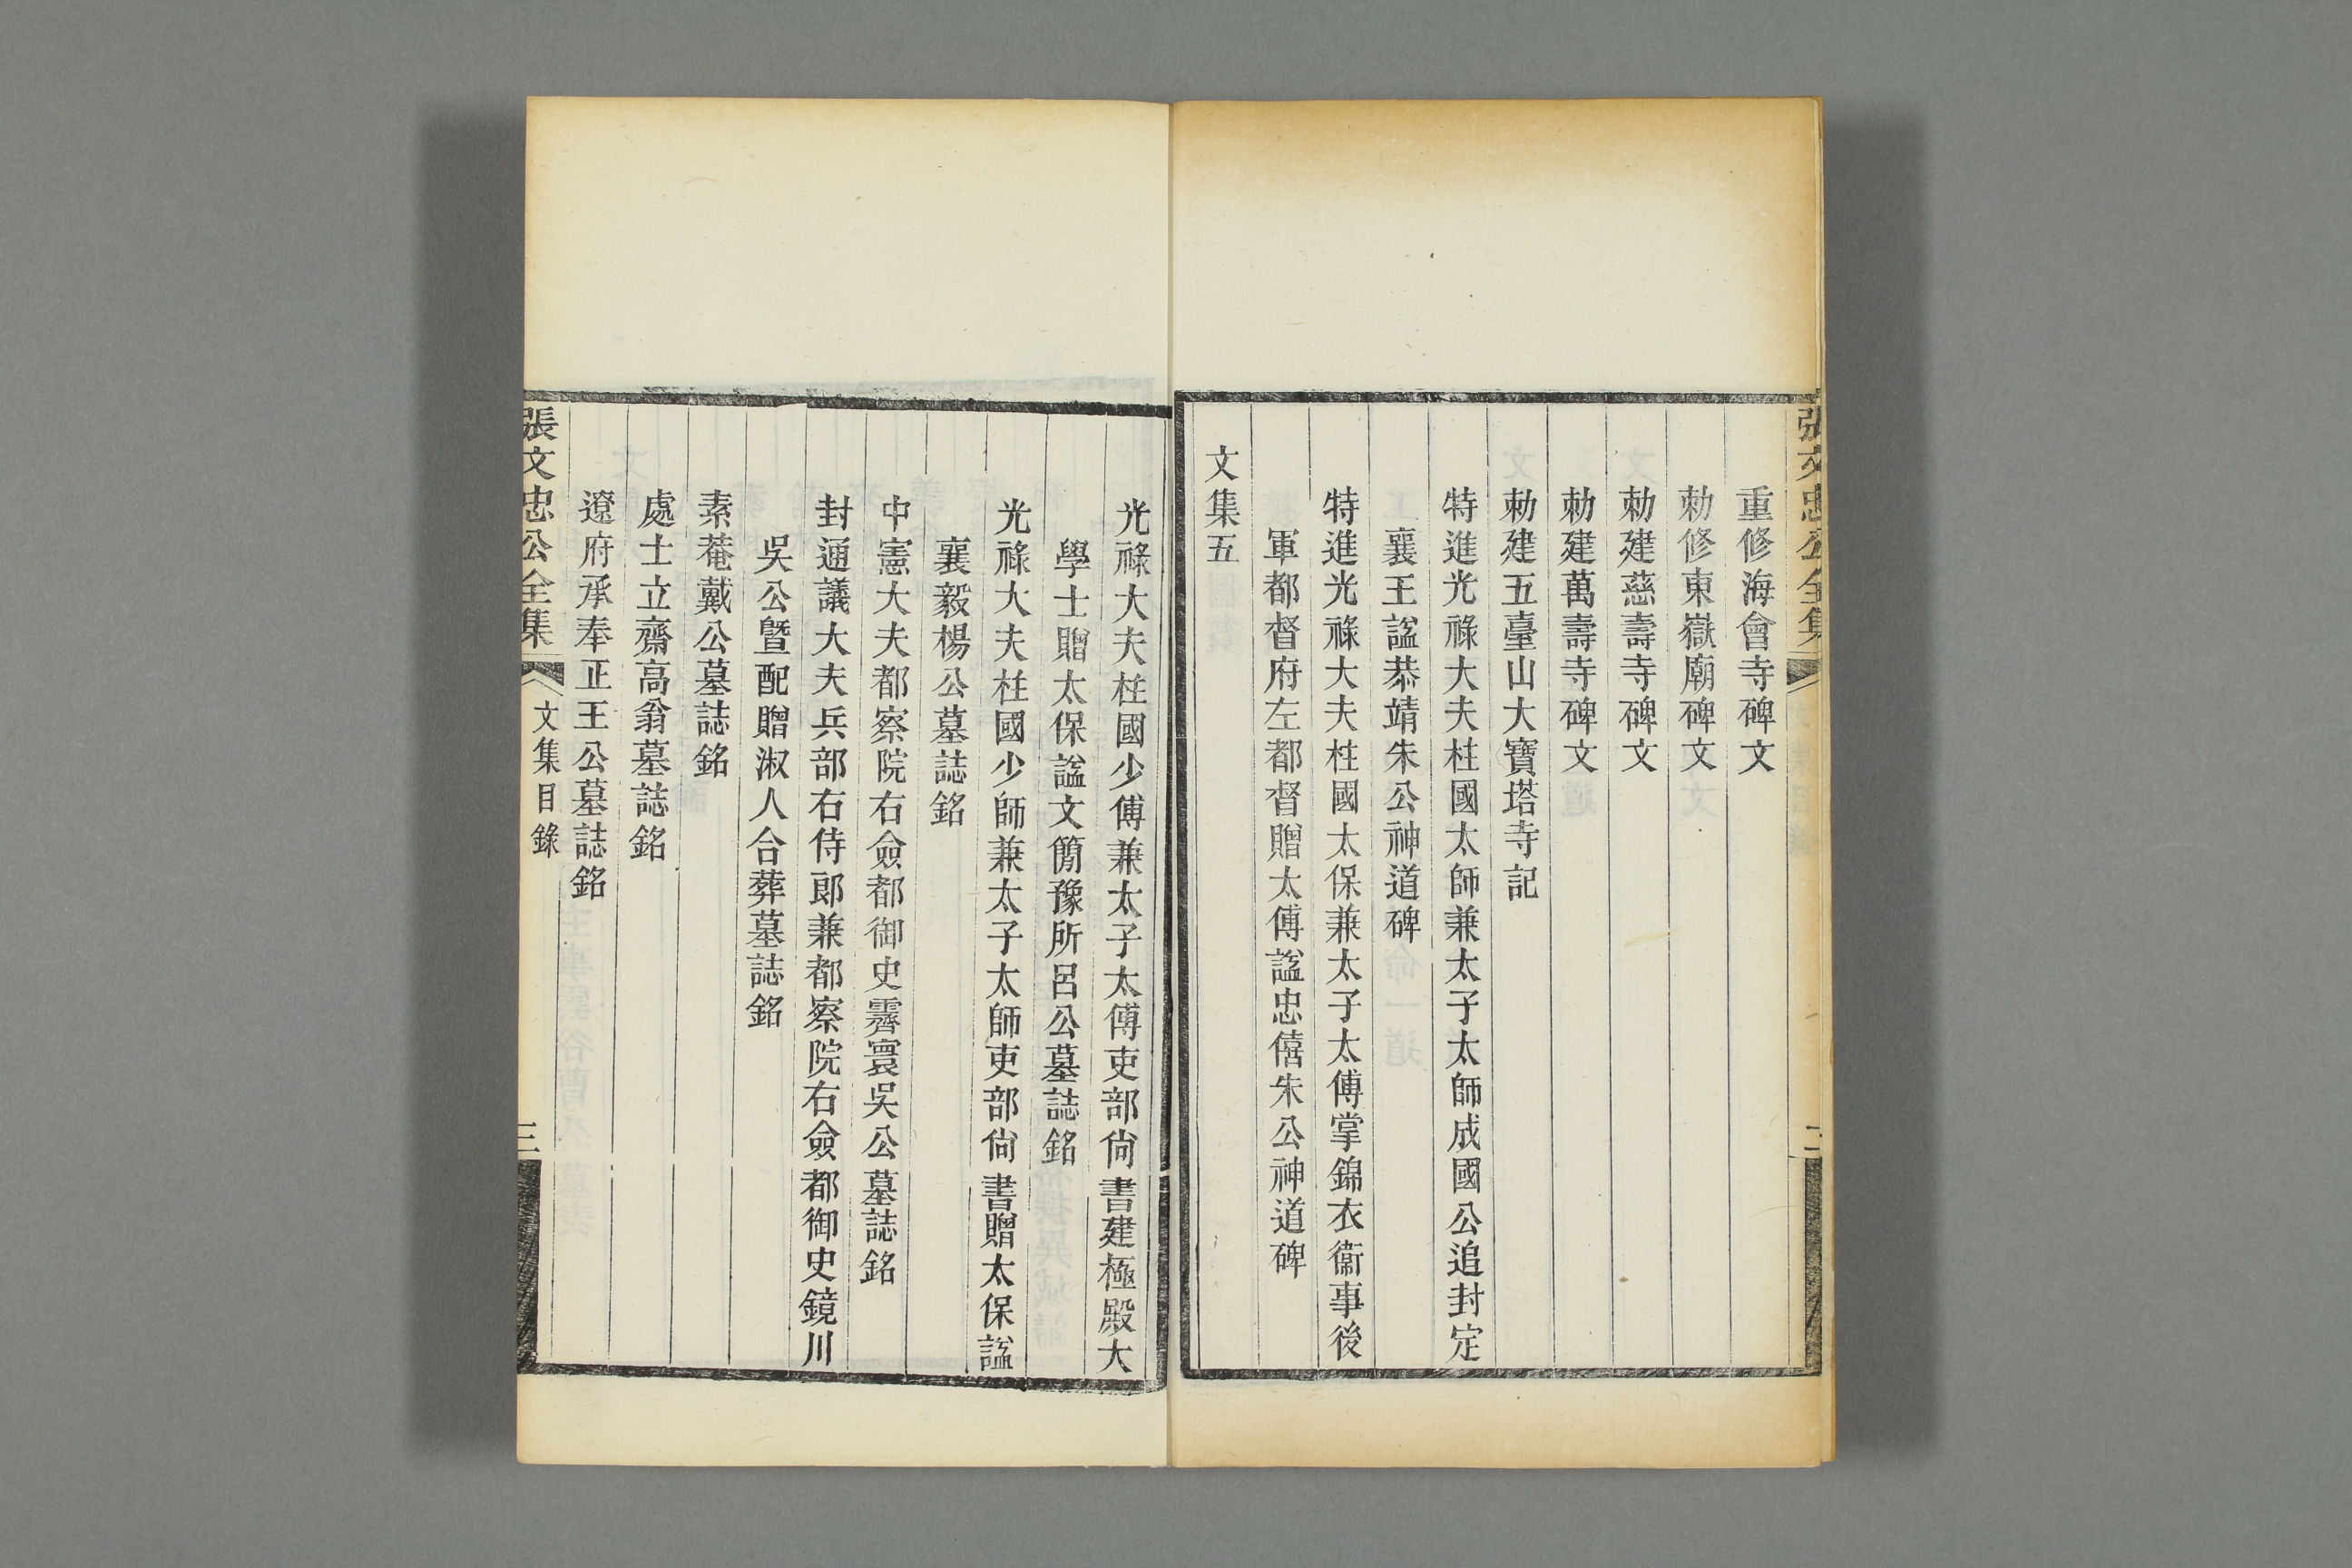 張文忠公全集
二
重修海會寺碑文
勅修東嶽廟碑文
勅建慈壽寺碑文
勅建萬壽寺碑文
勅建五臺山大寶塔寺記
特進光祿大夫柱國太師兼太子太師成國公追封定
襄王諡恭靖朱公神道碑
特進光祿大夫柱國太保兼太子太傅掌錦衣衞事後
軍都督府左都督贈太傅諡忠僖朱公神道碑
文集五
光祿大夫柱國少傅兼太子太傅吏部尙書建極殿大
學士贈太保諡文簡豫所呂公墓誌銘
光祿大夫柱國少師兼太子太師吏部尙書贈太保諡
襄毅楊公墓誌銘
中憲大夫都察院右僉都御史霽寰吳公墓誌銘
封通議大夫兵部右侍郎兼都察院右僉都御史鏡川
吳公曁配贈淑人合葬墓誌銘
素菴戴公墓誌銘
處士立齋高翁墓誌銘
遼府承奉正王公墓誌銘
張文忠公全集
文集目錄
三